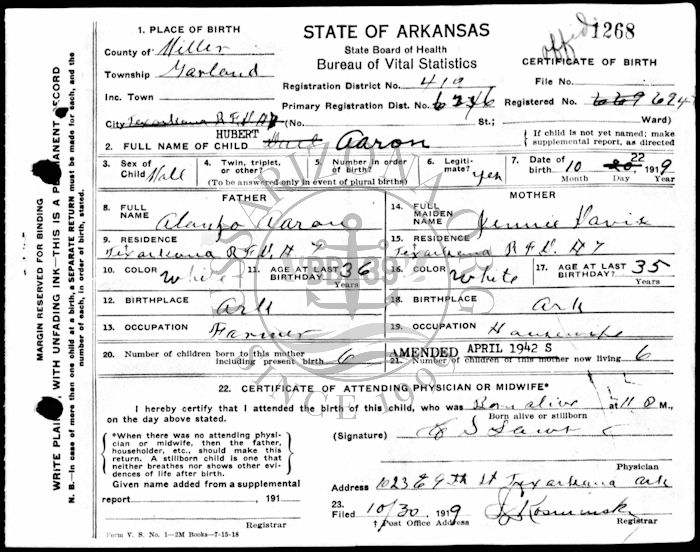 STATE OF ARKANSAS
State Board of Health
Bureau of Vital Statistics
1268
CERTIFICATE OF BIRTH
1. PLACE OF BIRTH
County of Miller
Township Garland
Inc. Town
City Texarkana R F D (No. St.; Ward)
Registration District No. 419
Primary Registration Dist. No. 6246
File No.
Registered No.
HUBERT
2. FULL NAME OF CHILD Aaron
If child is not yet named; make supplemental report, as directed
3. Sex of Child Mall
4. Twin, triplet, or other?
5. Number in order of birth?
(To be answered only in event of plural births)
6. Legitimate? yes
7. Date of birth 10 20 22 1919
Month Day Year
FATHER
8. FULL NAME Alonzo Aaron
9. RESIDENCE Texarkana R F D # 7
10. COLOR White
11. AGE AT LAST BIRTHDAY 36
Years
12. BIRTHPLACE Ark
13. OCCUPATION Farmer
MOTHER
14. FULL MAIDEN NAME Jennie Davis
15. RESIDENCE Texarkana R F D # 7
16. COLOR White
17. AGE AT LAST BIRTHDAY 35
Years
18. BIRTHPLACE Ark
19. OCCUPATION Housewife
20. Number of children born to this mother including present birth 6
AMENDED APRIL 1942 S
21. Number of children of this mother now living 6
22. CERTIFICATE OF ATTENDING PHYSICIAN OR MIDWIFE*
I hereby certify that I attended the birth of this child, who was Born alive at 11 M.,
Born alive or stillborn
on the day above stated.
*When there was no attending physician or midwife, then the father, householder, etc., should make this return. A stillborn child is one that neither breathes nor shows other evidences of life after birth.
(Signature)
Physician
Given name added from a supplemental
report 191
Registrar
Address 1023 E 9th St Texarkana Ark
23.
Filed 10/30 1919 Kosminsky
† Post Office Address Registrar
Form V. S. No. 1—2M Books—7-15-18
MARGIN RESERVED FOR BINDING
WRITE PLAINLY, WITH UNFADING INK—THIS IS A PERMANENT RECORD
N. B.—In case of more than one child at a birth, a SEPARATE RETURN must be made for each, and the number of each, in order of birth, stated.
SINCE 1909